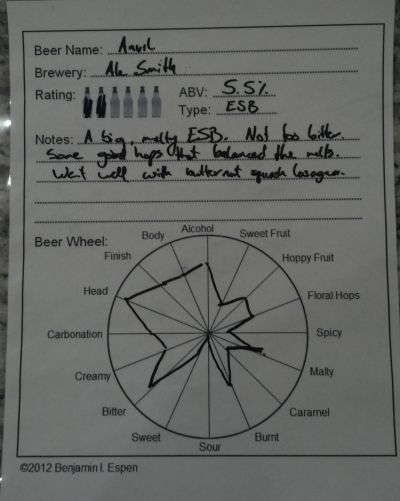 Beer Name: Anvil
Brewery: Ale Smith
Rating: ABV: 5.5%
Type: ESB
Notes: A big, malty ESB. Not too bitter.
Some good hops that balanced the malts.
Went well with butternut squash lasagna.
Beer Wheel:
Alcohol
Sweet Fruit
Hoppy Fruit
Floral Hops
Spicy
Malty
Caramel
Burnt
Sour
Sweet
Bitter
Creamy
Carbonation
Head
Finish
Body
©2012 Benjamin I. Espen